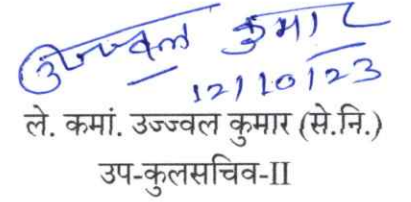 उज्ज्वल कुमार
12/10/23
ले. कमां. उज्ज्वल कुमार (से.नि.)
उप-कुलसचिव-II